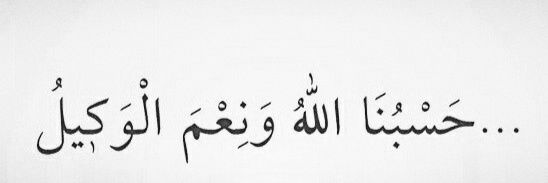 ...حَسْبُنَا اللّٰهُ وَنِعْمَ الْوَكِيلُ